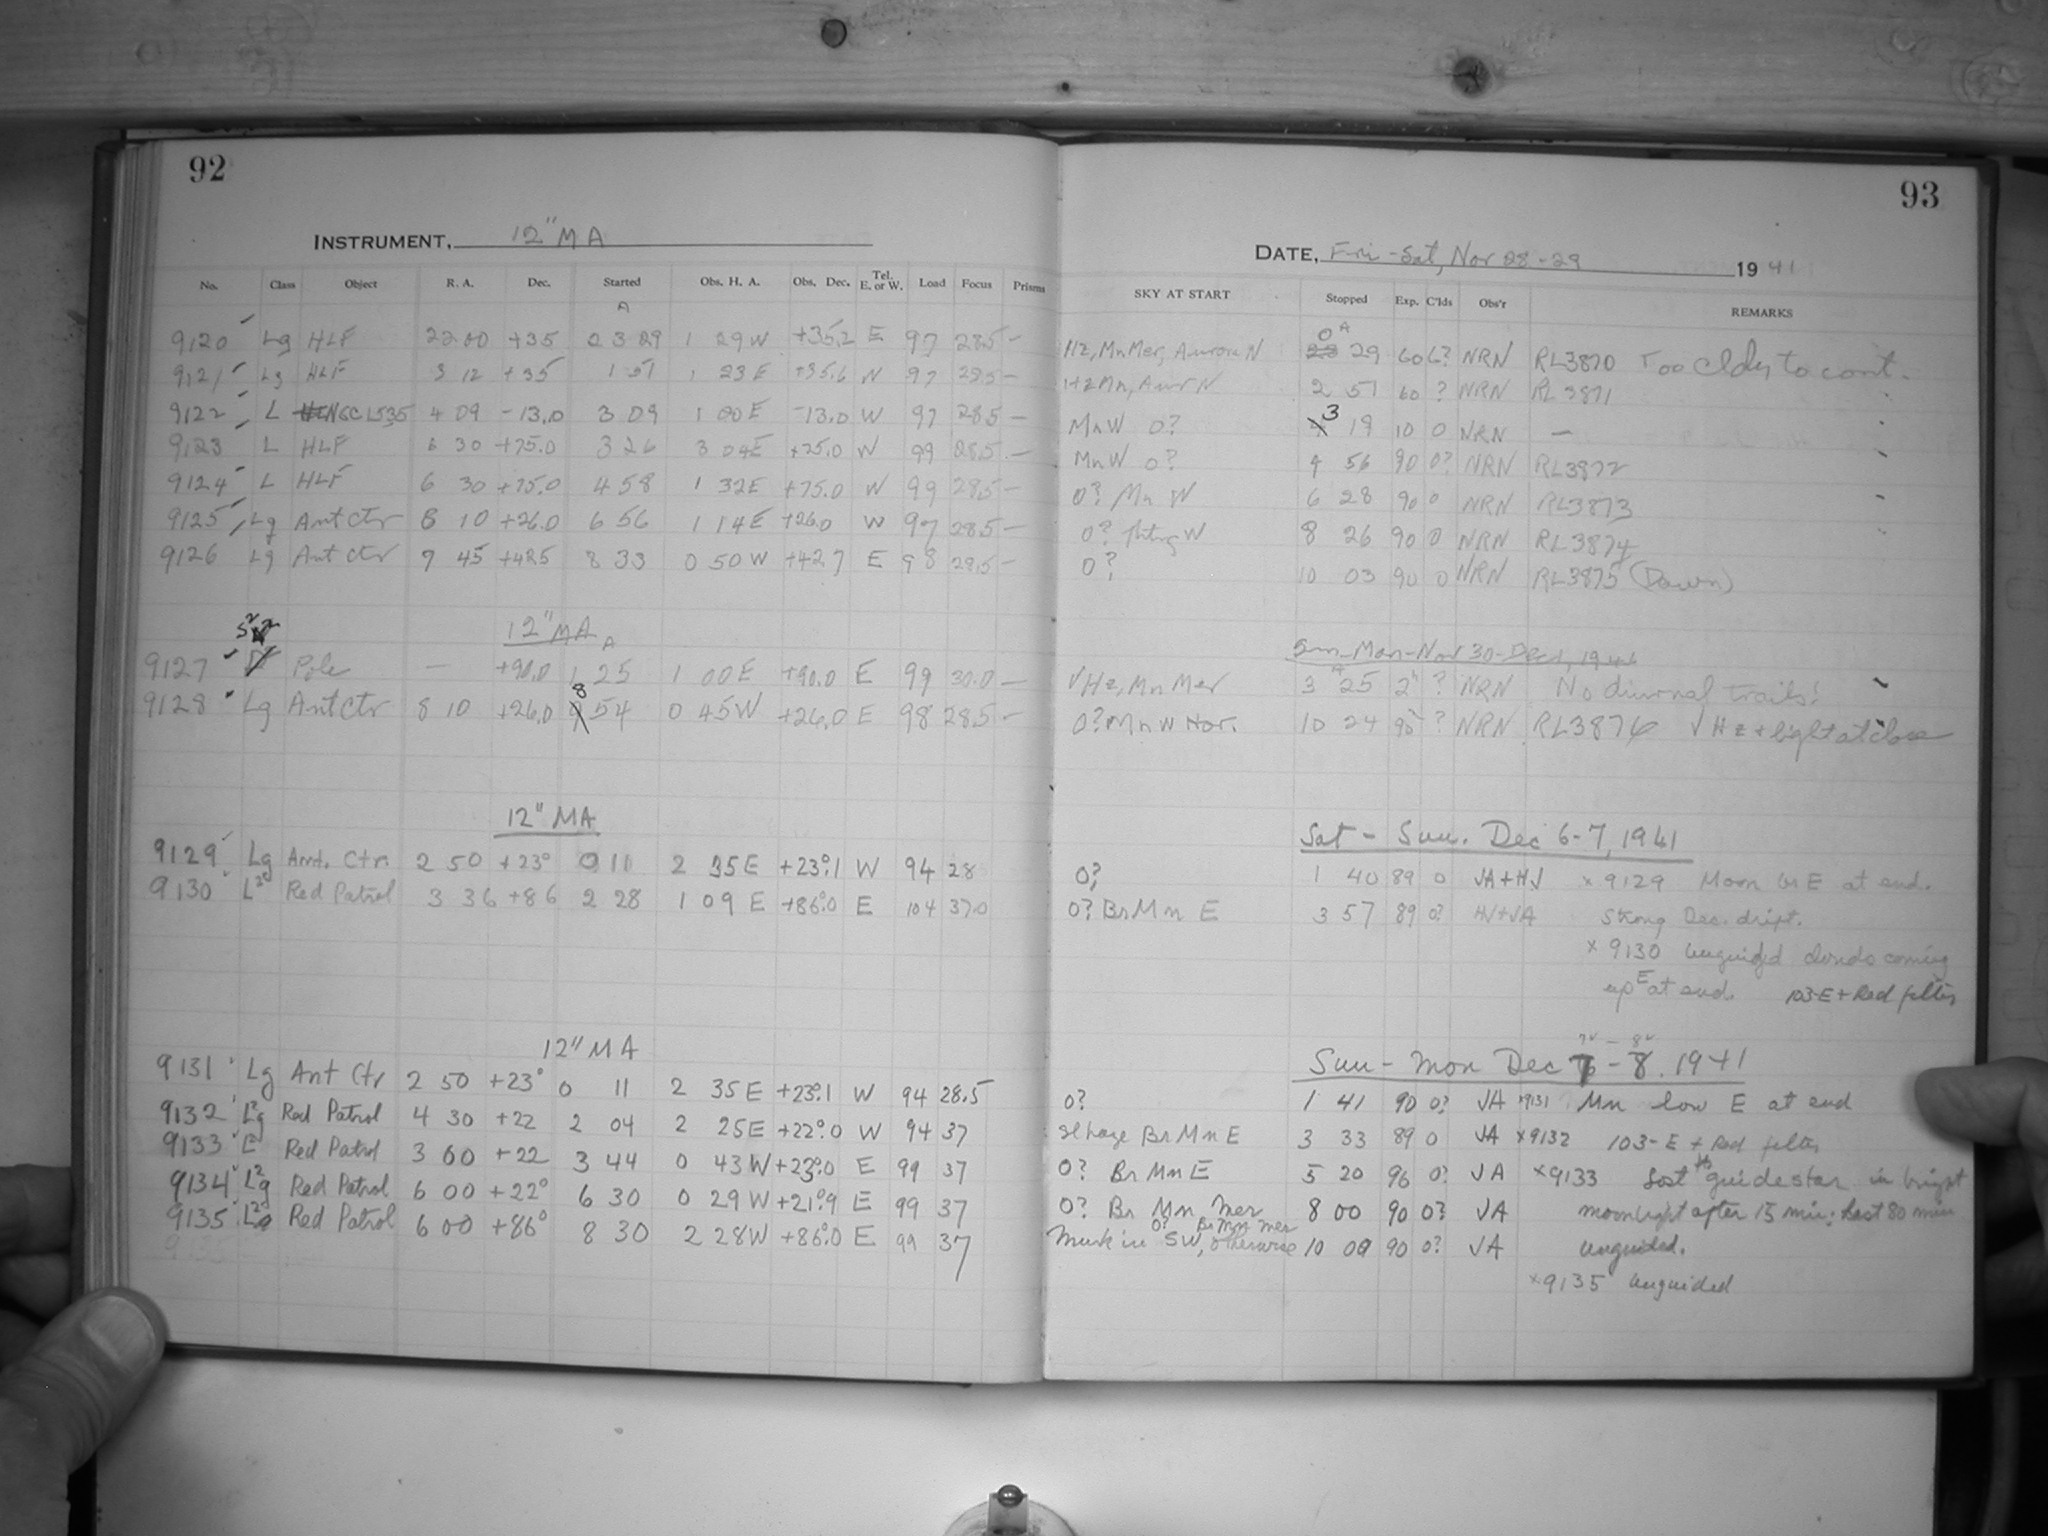 92
INSTRUMENT, 12" MA
No. Class Object R. A. Dec. Started Obs. H. A. Obs. Dec. Tel. E. or W. Load Focus Prisms
A
9120 Lg HLF 22 00 +35 23 29 1 29 W +35.2 E 97 28.5 —
9121 Lg HLF 3 12 +35 1 51 1 23 E +35.6 W 97 28.5 —
9122 L NGC1535 4 09 -13.0 3 09 1 00 E -13.0 W 97 28.5 —
9123 L HLF 6 30 +75.0 3 26 3 04 E +75.0 W 99 28.5 —
9124 L HLF 6 30 +75.0 4 58 1 32 E +75.0 W 99 28.5 —
9125 Lg Ant Ctr 8 10 +26.0 6 56 1 14 E +26.0 W 97 28.5 —
9126 Lg Ant Ctr 7 45 +42.5 8 33 0 50 W +42.7 E 98 28.5 —
12" MA
9127 Pole — +90.0 1 25 1 00 E +90.0 E 99 30.0 —
9128 Lg Ant Ctr 8 10 +26.0 8 54 0 45 W +26.0 E 98 28.5 —
12" MA
9129 Lg Ant. Ctr. 2 50 +23° 0 11 2 35 E +23°.1 W 94 28
9130 L² Red Patrol 3 36 +86 2 28 1 09 E +86°.0 E 104 37.0
12" MA
9131 Lg Ant Ctr 2 50 +23° 0 11 2 35 E +23°.1 W 94 28.5
9132 L²g Red Patrol 4 30 +22 2 04 2 25 E +22°.0 W 94 37
9133 L² Red Patrol 3 60 +22 3 44 0 43 W +23°.0 E 99 37
9134 L²g Red Patrol 6 00 +22° 6 30 0 29 W +21°.9 E 99 37
9135 Red Patrol 6 00 +86° 8 30 2 28 W +86°.0 E 99 37
93
DATE, Fri - Sat, Nov 28 - 29 1941
SKY AT START Stopped Exp. C'lds Obs'r REMARKS
Hz, Mn Mer, Aurora N 0 29 60 6? NRN RL3870 Too Cldy to cont.
Hz Mn, Aur N 2 51 60 ? NRN RL3871
Mn W 0? 3 19 10 0 NRN —
Mn W 0? 4 56 90 0? NRN RL3872
0? Mn W 6 28 90 0 NRN RL3873
0? W 8 26 90 0 NRN RL3874
0? 10 03 90 0 NRN RL3875 (Dawn)
Sun-Mon-Nov 30-Dec 1, 1941
√Hz, Mn Mer 3 25 2h ? NRN No diurnal trails!
0? Mn W Hor. 10 24 90 ? NRN RL3876 √Hz + light at close
Sat - Sun. Dec 6-7, 1941
0? 1 40 89 0 JA+HJ × 9129 Moon in E at end.
0? Br Mn E 3 57 89 0? HJ+JA Strong Dec. drift.
× 9130 unguided clouds coming
up E at end. 103-E + Red filter
7 - 8
Sun - Mon Dec 7 - 8. 1941
0? 1 41 90 0? JA ×9131 Mn low E at end
sl haze Br Mn E 3 33 89 0 JA ×9132 103-E + Red filter
0? Br Mn E 5 20 96 0? JA ×9133 Lost guide star in bright
0? Br Mn Mer 8 00 90 0? JA moonlight after 15 min; last 80 min
Murk in SW, 0? otherwise Br Mn Mer 10 00 90 0? JA unguided.
×9135 unguided